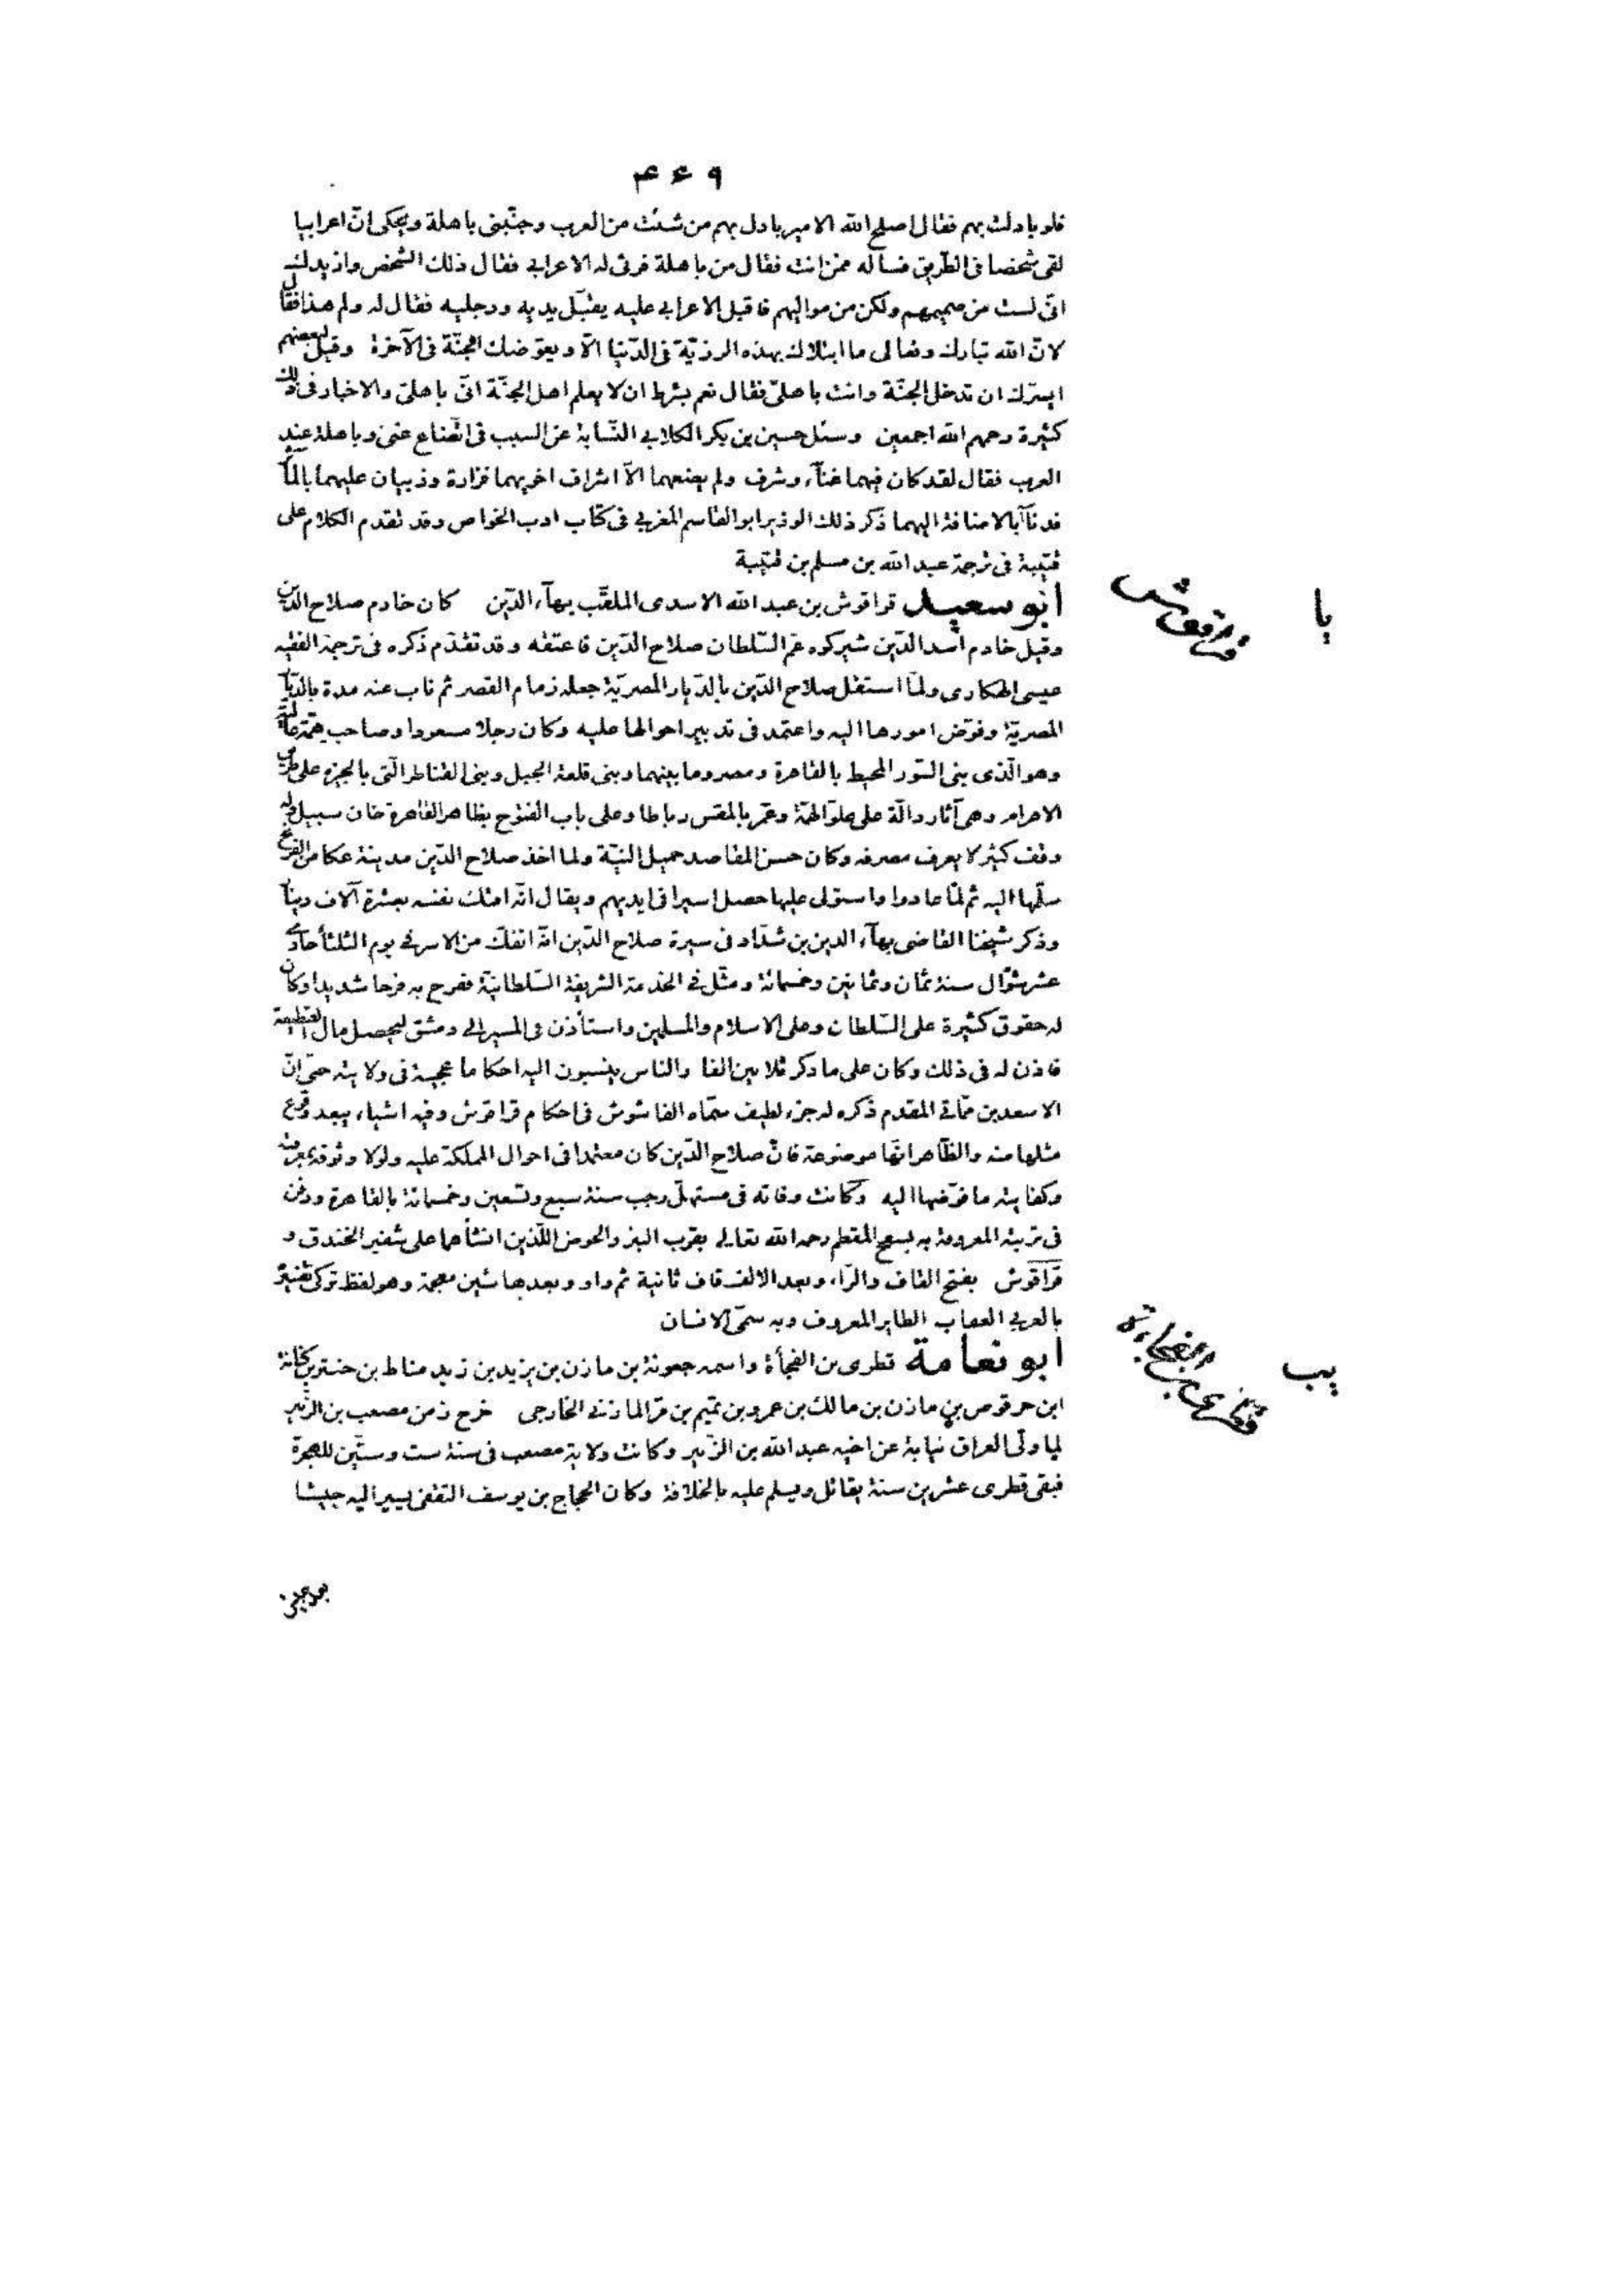 ۴۶۹
فلو بادلت بهم فقال اصلح الله الامير بادل بهم من شئت من العرب وجنّبنى باهلة ويحكى انّ اعرابيا
لقى شخصا فى الطّريق فسأله ممّن انت فقال من باهلة فرثى له الاعرابى فقال ذلك الشّخص وازيدك
انّى لست من صميمهم ولكن من مواليهم فاقبل الاعرابى عليه يقبّل يديه ورجليه فقال له ولم هذا فقال
لانّ الله تبارك وتعالى ما ابتلاك بهذه الرزيّة فى الدّنيا الّا ويعوّضك الجنّة فى الآخرة وقيل لبعضهم
ايسرّك ان تدخل الجنّة وانت باهلىّ فقال نعم بشرط ان لا يعلم اهل الجنّة انّى باهلىّ والاخبار فى ذلك
كثيرة رحمهم الله اجمعين وسئل حسين بن بكر الكلابى النّسابة عن السبب فى اتّضاع غنى وباهلة عند
العرب فقال لقد كان فيهما غنآء وشرف ولم يضعهما الّا اشراف اخويهما فزارة وذبيان عليهما بالمآثر
فدنآ بالاضافة اليهما ذكر ذلك الوزير ابو القاسم المغربى فى كتاب ادب الخواص وقد تقدم الكلام على
قتيبة فى ترجمة عبد الله بن مسلم بن قتيبة
يا
قراقوش
ابو سعيد قراقوش بن عبد الله الاسدى الملقّب بهآء الدّين كان خادم صلاح الدّين
وقيل خادم اسد الدّين شيركوه عمّ السّلطان صلاح الدّين فاعتقه وقد تقدّم ذكره فى ترجمة الفقيه
عيسى الهكارى ولمّا استقلّ صلاح الدّين بالدّيار المصريّة جعله زمام القصر ثم ناب عنه مدة بالدّيار
المصريّة وفوّض امورها اليه واعتمد فى تدبير احوالها عليه وكان رجلا مسعودا وصاحب همّة عالية
وهو الّذى بنى السّور المحيط بالقاهرة ومصر وما بينهما وبنى قلعة الجبل وبنى القناطر الّتى بالجيزه على طريق
الاهرام وهى آثار دالّة على علوّ الهمّة وعمّر بالمقس رباطا وعلى باب الفتوح بظاهر القاهرة خان سبيل وله
وقف كثير لا يعرف مصرفه وكان حسن المقاصد جميل النيّة ولما اخذ صلاح الدّين مدينة عكا من الفرنج
سلّمها اليه ثم لمّا عادوا واستولى عليها حصل اسيرا فى ايديهم ويقال انّه افتك نفسه بعشرة آلاف دينار
وذكر شيخنا القاضى بهآء الدين بن شدّاد فى سيرة صلاح الدّين انّه انفكّ من الاسر فى يوم الثلثاء حادى
عشر شوّال سنة ثمان وثمانين وخمسمائة ومثّل فى الخدمة الشريفة السّلطانيّة ففرح به فرحا شديدا وكان
له حقوق كثيرة على السّلطان وعلى الاسلام والمسلمين واستأذن فى المسير الى دمشق ليحصل مال القطيعة
فاذن له فى ذلك وكان على ما ذكر ثلاثين الفا والناس ينسبون اليه احكاما عجيبة فى ولايته حتى انّ
الاسعد بن ممّاتى المقدم ذكره له جزء لطيف سمّاه الفاشوش فى احكام قراقوش وفيه اشياء يبعد وقوع
مثلها منه والظّاهر انّها موضوعة فانّ صلاح الدّين كان معتمدا فى احوال المملكة عليه ولولا وثوقه بمعرفته
وكفايته ما فوّضها اليه وكانت وفاته فى مستهلّ رجب سنة سبع وتسعين وخمسمائة بالقاهرة ودفن
فى تربته المعروفة به بسفح المقطم رحمه الله تعالى بقرب البئر والحوض اللّذين انشأهما على شفير الخندق و
قراقوش بفتح القاف والرّاء وبعد الالف قاف ثانية ثم واو وبعدها شين معجمة وهو لفظ تركى تفسيره
بالعربى العقاب الطاير المعروف وبه سمّى الانسان
يب
قطرى بن الفجاءة
ابو نعامة قطرى بن الفجأة واسمه جعونة بن مازن بن يزيد بن زيد مناط بن حنتر بن كنانة
ابن حرقوص بن مازن بن مالك بن عمرو بن تميم بن مرّ المازنى الخارجى خرج زمن مصعب بن الزّبير
لما ولّى العراق نيابة عن اخيه عبد الله بن الزّبير وكانت ولاية مصعب فى سنة ست وستّين للهجرة
فبقى قطرى عشرين سنة يقاتل ويسلم عليه بالخلافة وكان الحجاج بن يوسف الثقفى يسير اليه جيشا
بعد جيش